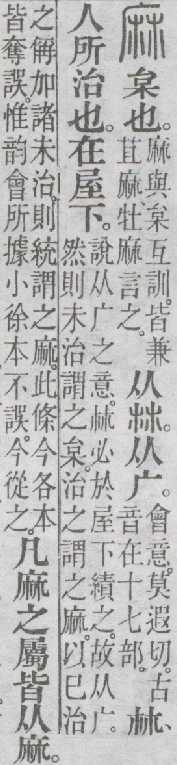 麻 枲也。麻與枲互訓。皆兼苴麻牡麻言之。从𣏟。从广。會意。莫遐切。古音在十七部。𣏟、
人所治也。在屋下。說从广之意。𣏟必於屋下績之。故从广。然則未治謂之枲。治之謂之麻。以已治
之偁加諸未治。則統謂之麻。此條今各本皆奪誤。惟韵會所據小徐本不誤。今從之。凡麻之屬皆从麻。